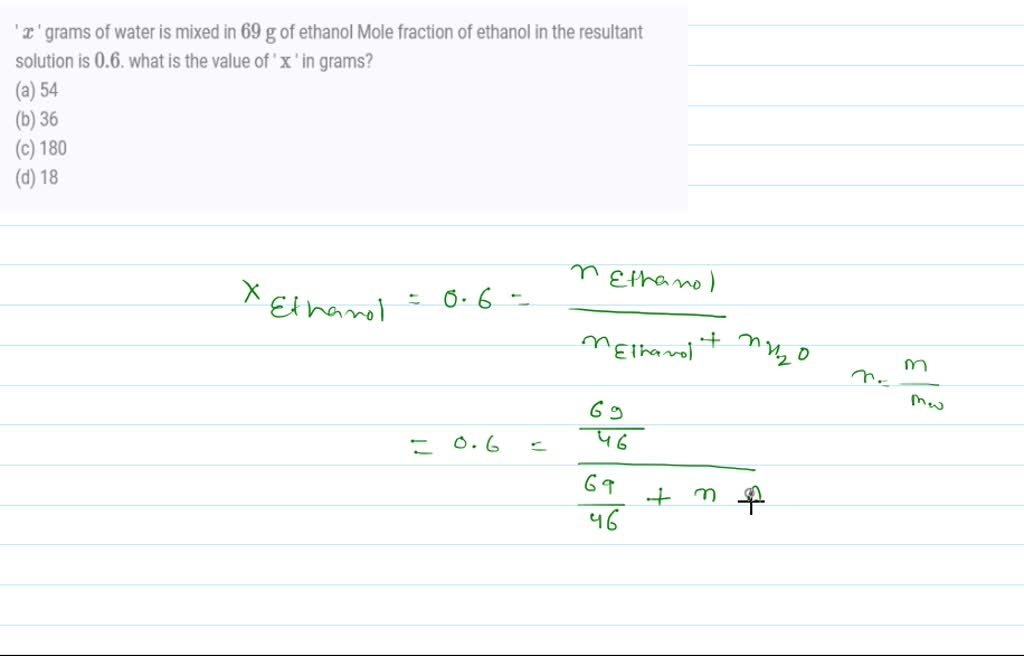 ' x ' grams of water is mixed in 69 g of ethanol Mole fraction of ethanol in the resultant
solution is 0.6. what is the value of ' x ' in grams?
(a) 54
(b) 36
(c) 180
(d) 18
X Ethanol = 0.6 = n Ethanol
n Ethanol + n H2O
n = m
mw
= 0.6 = 69
46
69
46 + n